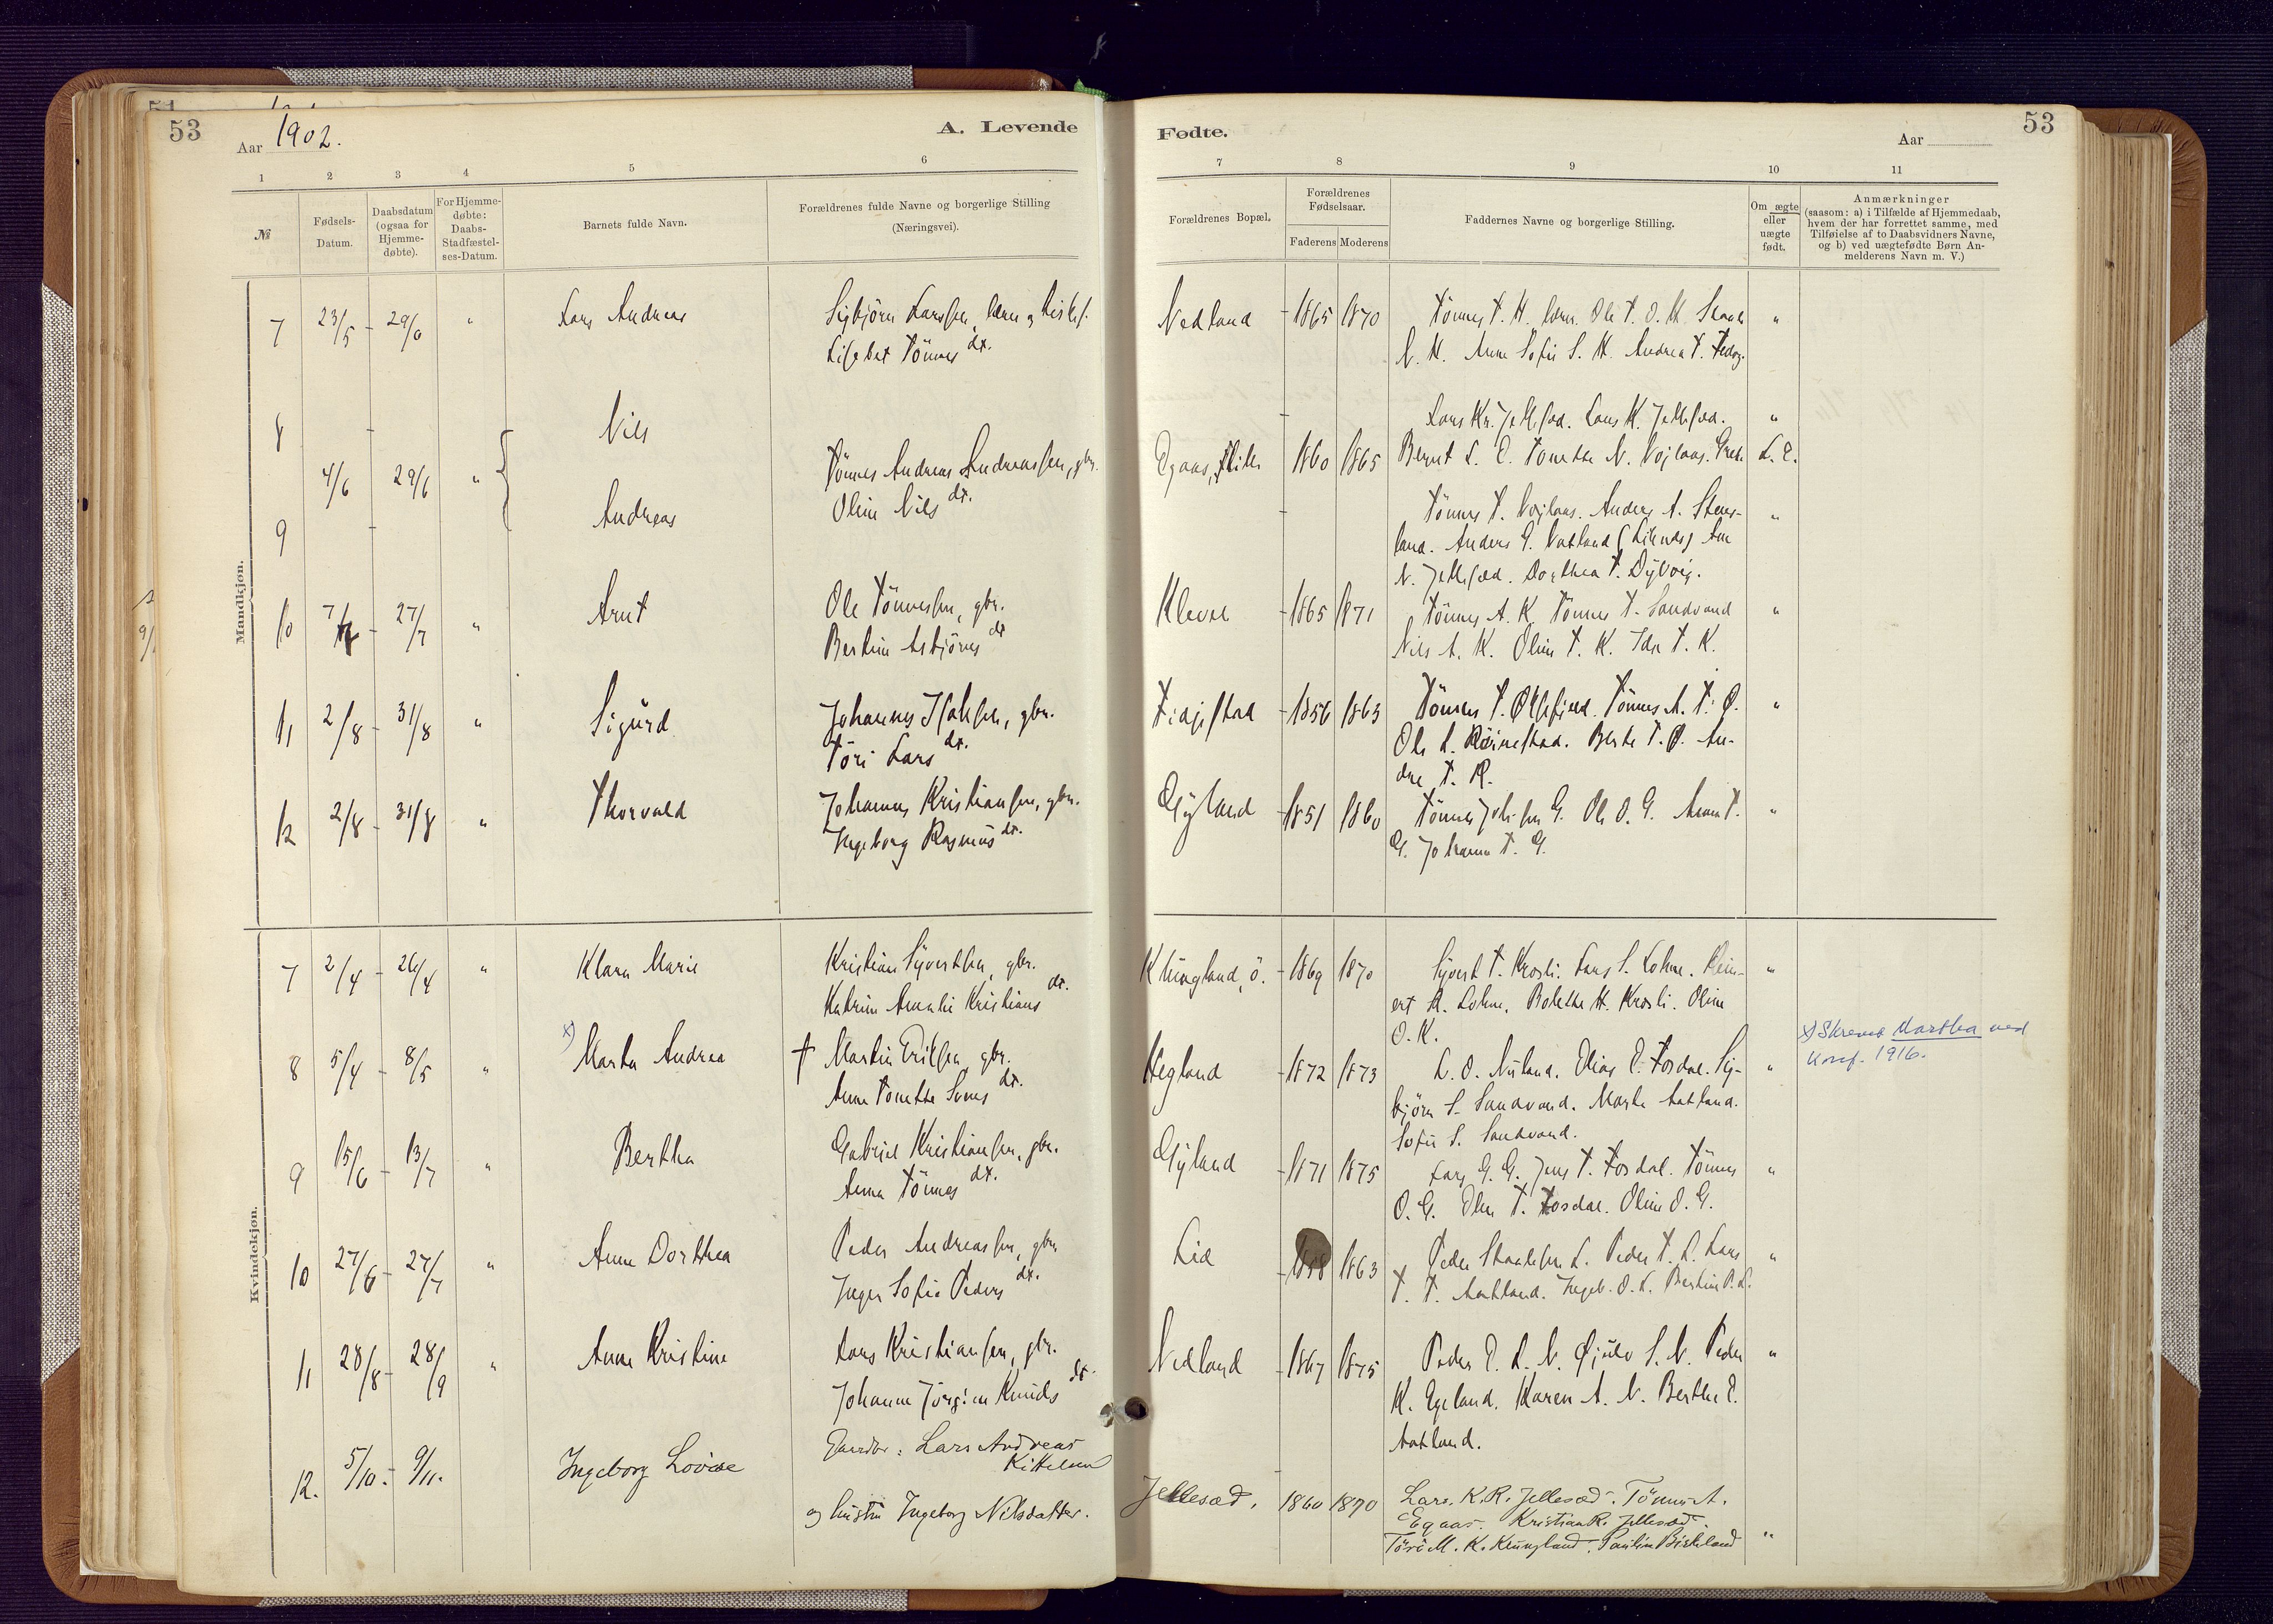 53
Aar 1902.
A. Levende
Fødte.
Aar
53
1 2 3 4 5 6 7 8 9 10 11
№
Fødsels-
Datum.
Daabsdatum
(ogsaa for
Hjemme-
døbte).
For Hjemme-
døbte:
Daabs-
Stadfæstel-
ses-Datum.
Barnets fulde Navn.
Forældrenes fulde Navne og borgerlige Stilling
(Næringsvei).
Forældrenes Bopæl.
Forældrenes
Fødselsaar.
Faderens Moderens
Faddernes Navne og borgerlige Stilling.
Om ægte
eller
uægte
født.
Anmærkninger
(saasom: a) i Tilfælde af Hjemmedaab,
hvem der har forrettet samme, med
Tilføielse af to Daabsvidners Navne,
og b) ved uægtefødte Børn An-
melderens Navn m. V.)
Mandkjøn.
7 23/5 - 29/6 " Lars Andreas
Sigbjörn Larssen, lærer og
Lisebet Tönnes dt.
Nedland - 1865 1870
Tönnes T. H. Ole T. O. H.
N. H. Anne Sofie S. H. Andrea T.
"
8 Nils
Lars Kr. Jellesæd. Lars K. Jellesæd.
"
4/6 29/6 "
Tönnes Andreas Andreassen, gbr.
Oline Nils dt.
Egaas, 1860 1865
Berget L. E. Tonette N.
L. E.
9 Andreas
Tönnes T. Anders A. Stens-
land. Anders G. Vatland
N. Jellesæd. Dorthea T. Dybvig.
"
10 7/7 - 27/7 " Arnt
Ole Tönnessen, gbr.
Bertine Asbjörns dt
Kleven - 1865 1871
Tönnes A. K. Tönnes T. Sandvand
Nils A. K. Oline T. K. Ida T. K.
"
11 2/8 - 31/8 " Sigurd
Johannes Isaksen, gbr.
Töri Lars dt.
- 1856 1863
Tönnes T. Tönnes A. T. Ø.
Ole L. Berte T. Ø. An-
drea T. R.
"
12 2/8 - 31/8 " Thorvald
Johannes Kristiansen, gbr.
Ingeborg Rasmus dt.
Gyland - 1851 1860
Tönnes Johs.sen G. Ole O. G. T.
G. Johanna T. G.
"
Kvindekjøn.
7 2/4 - 26/4 " Klara Marie
Kristian Syvertsen, gbr.
Katrine Amalie Kristians dt.
Klungland, ö. - 1869 1870
Syvert T. Krosli. Lars S. Lohne. Rein-
ert R. Lohne. Bolette H. Krosli. Oline
O. K.
"
8 5/4 - 8/5 " x) Marta Andrea
† Martin Eriksen, gbr.
Anne Tonette Svens dt.
Hegland - 1872 1873
L. O. Nuland. Elias E. Fosdal. Sig-
björn S. Sandvand. Marta Aatland.
Sofie S. Sandvand.
"
x) Skrevet Martha ved
Konf. 1916.
9 15/6 - 13/7 " Bertha
Gabriel Kristiansen, gbr.
Anna Tönnes dt.
Gyland - 1871 1875
Lars G. G. Jens T. Fosdal. Tönnes
O. G. Elen T. Fosdal. Oline O. G.
"
10 27/6 - 27/7 " Anne Dorthea
Peder Andreassen, gbr.
Inger Sofie Peders dt.
Lid - 1858 1863
Peder L. Peder T. L. Lars
T. T. Aatland. Ingeb. O. L. Bertine P. L.
"
11 28/8 - 28/9 " Anne Kristine
Lars Kristiansen, gbr.
Johanne Jörgine Knuds dt.
Nedland - 1867 1875
Peder E. L. N. Gjulv S. N. Peder
K. Egeland. Karen A. N. Berthe E.
Aatland.
"
12. 5/10. - 9/11. Ingeborg Lovise
Gaardbr: Lars Andreas
Kittelsen
og hustru Ingeborg Nilsdatter.
Jellesæd. 1860 1870
Lars. K. R. Jellesæd. Tönnes A.
Egaas. Kristian R. Jellesæd.
Töri M. K. Klungland. Pauline Birkeland
"